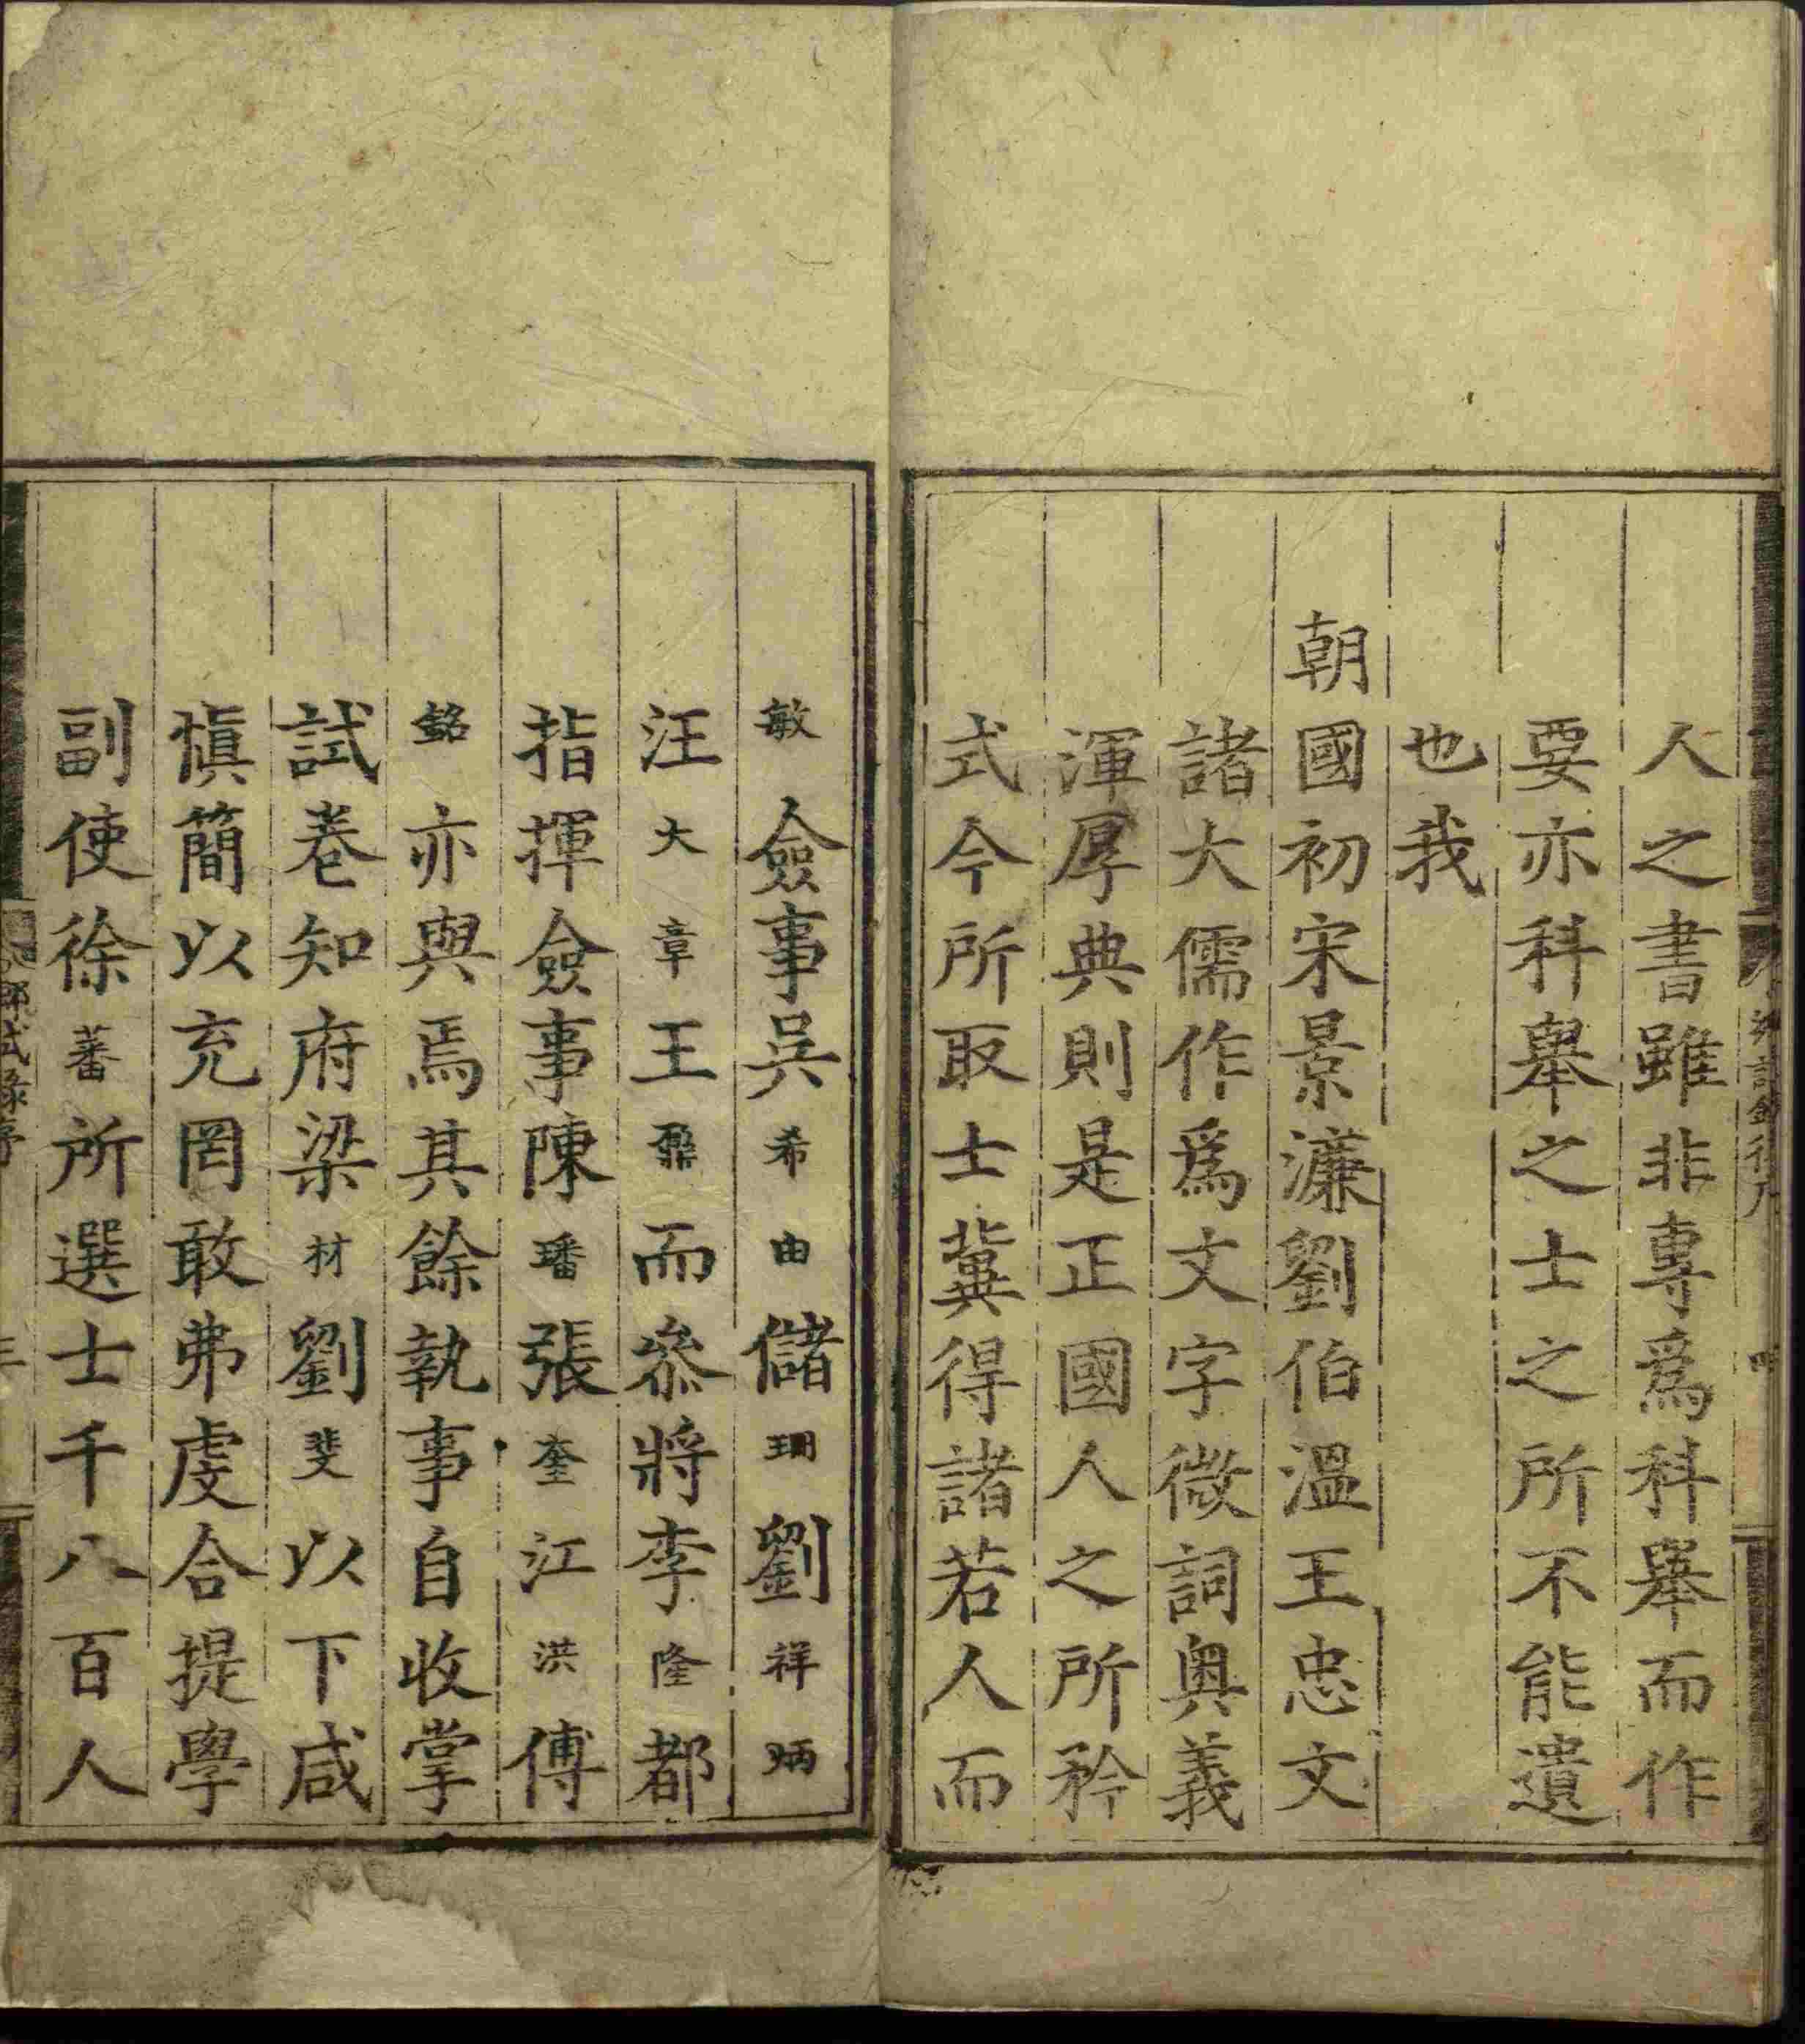 人之書雖非專爲科舉而作
要亦科舉之士之所不能遺
也我
朝國初宋景濂劉伯溫王忠文
諸大儒作爲文字微詞奧義
渾厚典則是正國人之所矜
式今所取士冀得諸若人而
敏僉事吳希由儲珊劉祥炳
汪大章王鼐而叅將李隆都
指揮僉事陳璠張奎江洪傅
銘亦與焉其餘執事自收掌
試巻知府梁材劉斐以下咸
愼簡以充罔敢弗虔合提學
副使徐蕃所選士千八百人